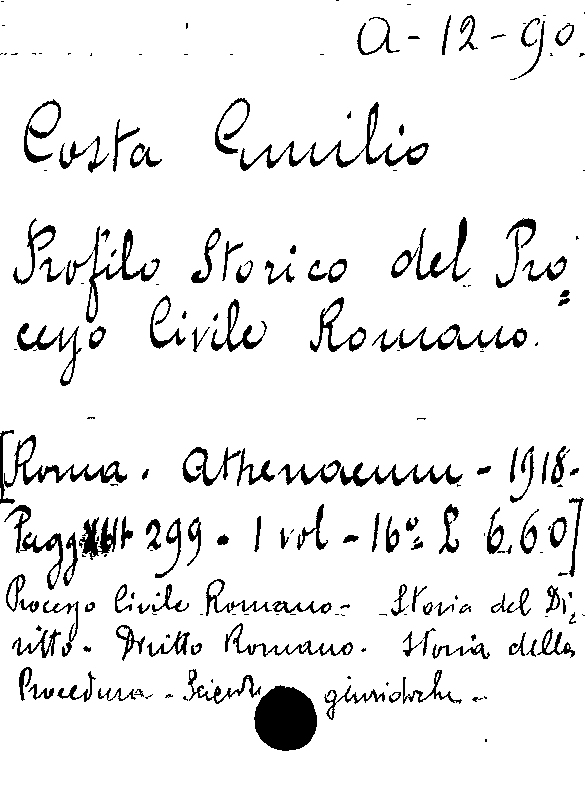 A-12-90.
Costa Emilio
Profilo Storico del Pro=
cesso Civile Romano.
[Roma. Athenaeum - 1918.
Pagg 299. 1 vol - 16º: £ 6.60]
Processo Civile Romano - Storia del Di=
ritto. Diritto Romano. Storia della
Procedura. - Scienze giuridiche. -